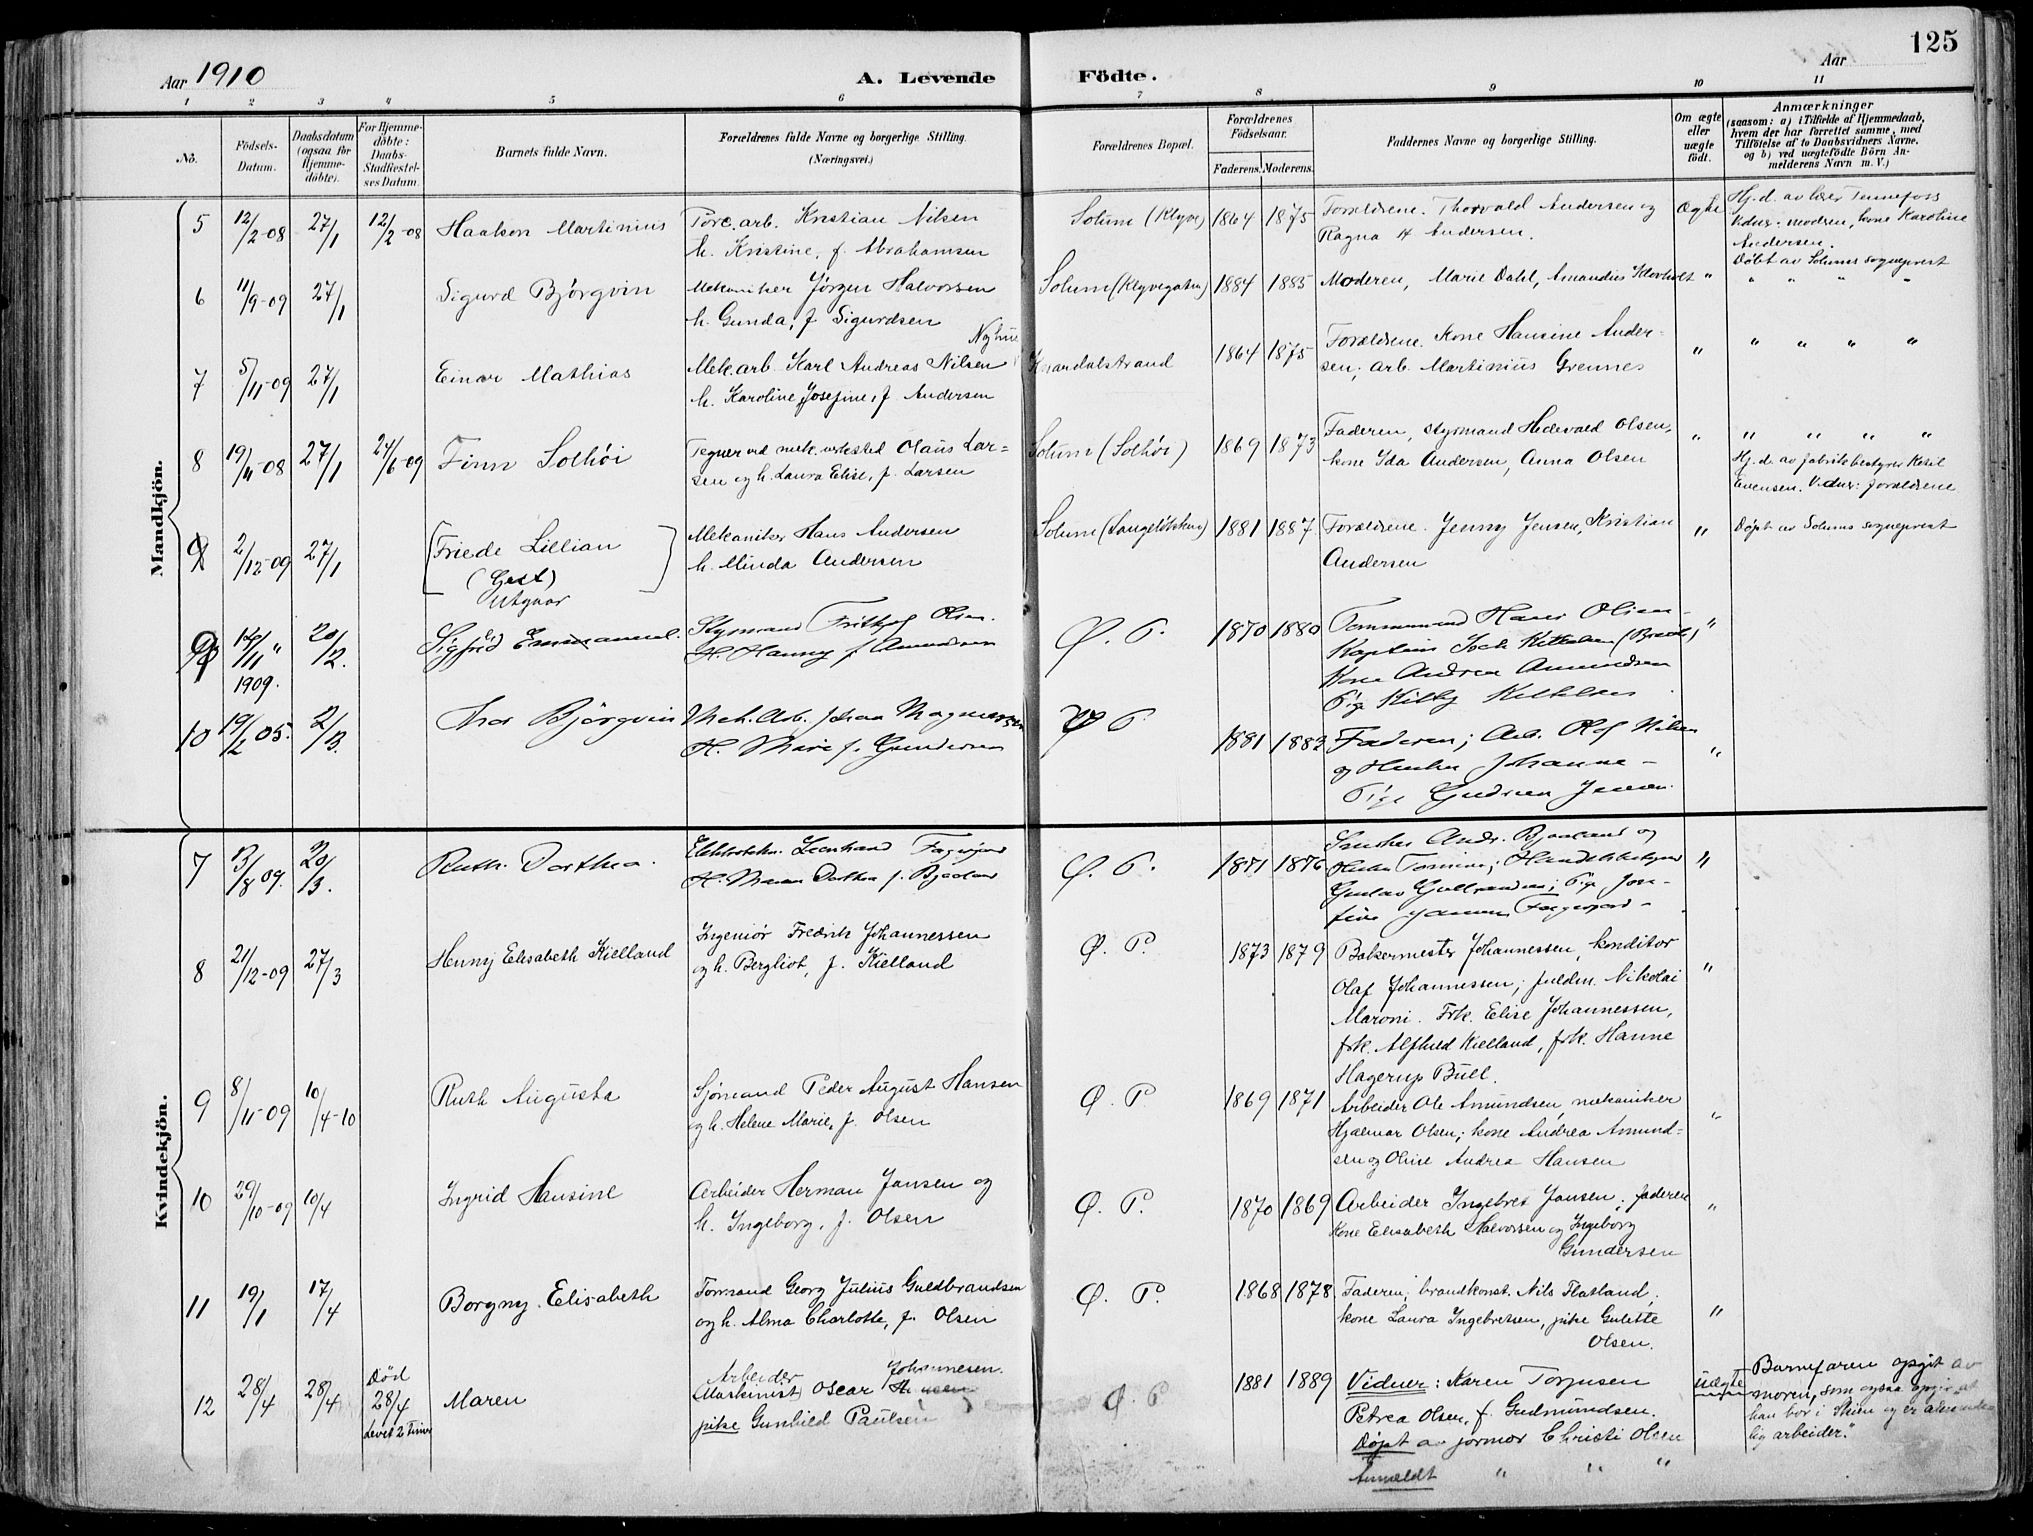 125
Aar 1910
A. Levende
Födte.
Aar
1 2 3 4 5 6 7 8 9 10 11
No.
Födsels-
Datum.
Daabsdatum
(ogsaa for
Hjemme-
döbte).
For Hjemme-
döbte:
Daabs-
Stadfæstel-
ses Datum.
Barnets fulde Navn.
Forældrenes fulde Navne og borgerlige Stilling.
(Næringsvei.)
Forældrenes Bopæl.
Forældrenes
Födselsaar.
Faderens. Moderens.
Faddernes Navne og borgerlige Stilling.
Om ægte
eller
uægte
født.
Anmærkninger
(saasom: a) i Tilfælde af Hjemmedaab,
hvem der har forrettet samme, med
Tilföielse af to Daabsvidners Navne,
og b) ved uægtefödte Börn An-
melderens Navn m. V.)
Mandkjön.
5 12/2-08 27/1 12/2-08 Haakon Martinius
Kristian Nilsen
h. Kristine, f. Abrahamsen
Solum (Klyve) 1864 1875
Forældrene. Thorvald Andersen og
Ragna H Andersen.
Ægte
Hj.d. av lærer Tennefoss
Vidner: mordren, kone Karoline
Andersen.
Döbt av Solums sogneprest
6 11/9-09 27/1 Sigurd Björgvin
Mekaniker Jörgen Halvorsen
h. Gunda, f Sigurdsen
Solum (Klyvegaten) 1884 1885
Moderen, Marie Dahl, Amandus Klovholt "
" " " "
7 5/11-09 27/1 Einar Mathias
Nyhus
Mek.arb. Karl Andreas Nilsen
h. Karoline Josefine, f. Andersen
Knardalstrand 1864 1875
Forældrene. Kone Hansine Ander-
sen; arb. Martinius Grennes
" " " " "
8 19/11-08 27/1 24/6-09 Finn Solhöi
Tegner ved mek. verksted Olaus Lar=
sen og h. Laura Elise, f. Larsen
Solum (Solhöi) 1869 1873
Faderen, styrmand Hedevald Olsen,
kone Ida Andersen, Anna Olsen
" " " " "
Hj.d. av fabrikbestyrer Ketil
Evensen. Vidner: forældrene
9 2/12-09 27/1 [Friede Lillian]
(Gest)
utgaar
Mekaniker Hans Andersen
h. Minda Andersen
Solum 1881 1887
Forældrene. Jenny Jensen, Kristian
Andersen
" Döpt av Solums sogneprest
9 /11 " 1909. 20/2. Sigfrid Emmanuel.
Styrmand Fritjof Olsen.
H. Hanny f Amundsen
Ø. P. 1870 1880
Hans Olsen-
Kaptein
Kone Andrea Amundsen
Pige
"
10 19/2 05. 2/3. Thor Björgvin
Mek. Arb. Johan Magnussen
H. Marie f. Gundersen
Ø P 1881 1883
Faderen; Arb. Olof Nilsen
og Hustru Johanne -
Pige Gudrun Jensen.
"
Kvindekjön.
7 13/8 09. 20/3. Ruth Dorthea.
H. Maren Dorthea f. Bjaaland
Ø. P. 1871 1876
Andr. Bjaaland og
Hustru
"
8 21/12-09 27/3 Henny Elisabeth Kielland
Ingeniör Fredrik Johannessen
og h. Bergliot, f. Kielland
Ø. P. 1873 1879
Bakermester Johannessen, konditor
Olaf Johannessen, fuldm. Nikolai
Maroni. Frk. Elise Johannessen,
frk. Alfhild Kielland, frk. Hanne
Hagerup Bull.
"
9 8/11-09 10/4-10 Ruth Augusta
Sjömand Peder August Hansen
og h. Helene Marie, f. Olsen
Ø. P. 1869 1871
Arbeider Ole Amundsen, mekaniker
Hjalmar Olsen; kone Andrea Amund=
sen og Oline Andrea Hansen
"
10 29/10-09 10/4 Ingrid Hansine
Arbeider Herman Jansen og
h. Ingeborg, f. Olsen
Ø. P. 1870 1869
Arbeider Ingebret Jansen; faderen
kone Elisabeth Halvorsen og Ingeborg
Gundersen
"
11 19/1 17/4 Borgny Elisabeth
Formand Georg Julius Guldbrandsen
og h. Alma Charlotte, f. Olsen
Ø. P. 1868 1878
Faderen; brandkonst. Nils Flatland,
kone Laura Ingebretsen, pike Gulette
Olsen.
"
12 28/4 28/4 Död 28/4 Levet 2 Timer Maren
Arbeider Johannesen.
(Maskinist) Oscar Hansen
pike Gunhild Paulsen
Ø P 1881 1889
Vidner: Karen Torjusen
Petrea Olsen, f. Gudmundsen.
Döpt av jormor Christi Olsen
Anmeldt " " "
uægte
Barnefaren opgit av
moren, som ogsaa opgir at
han bor i Skien og er
lig arbeider."